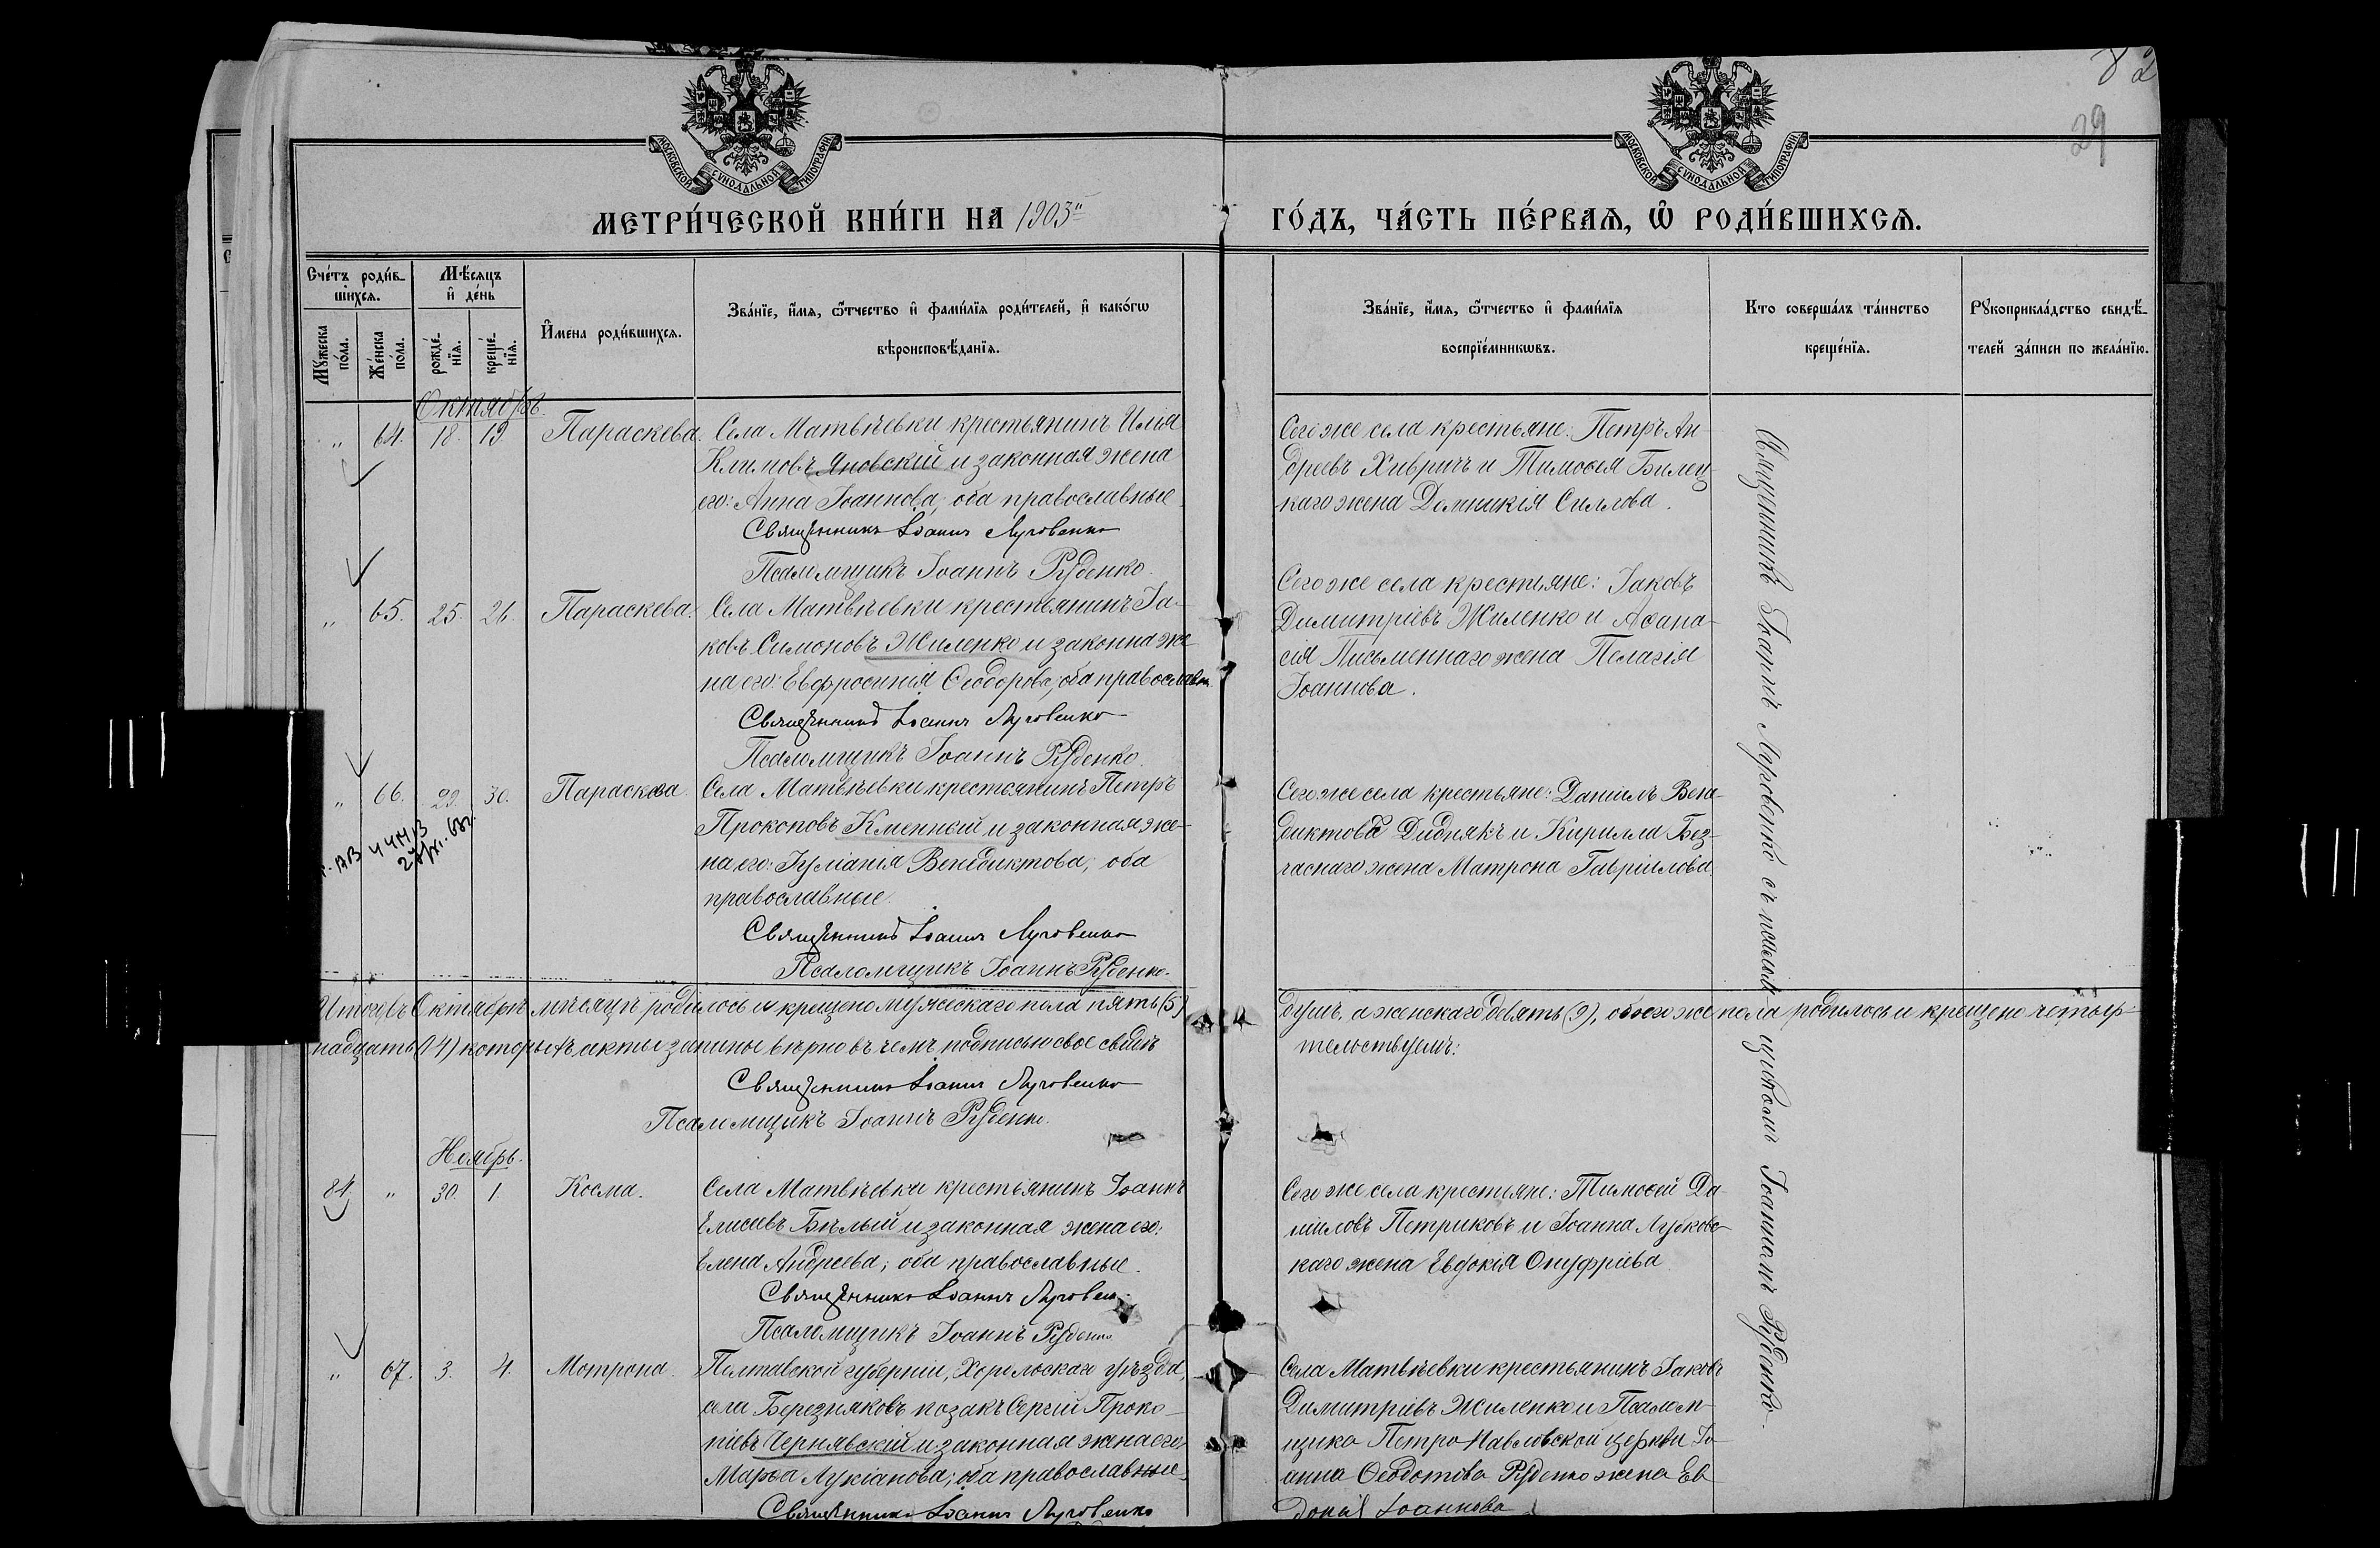 82
29
МОСКОВСКОЙ СѴНОДАЛЬНОЙ ТИПОГРАФІИ
МОСКОВСКОЙ СѴНОДАЛЬНОЙ ТИПОГРАФІИ
МЕТРИ́ЧЕСКОЙ КНИ́ГИ НА 1903й
ГО́ДЪ, ЧА́СТЬ ПЕ́РВАѦ, Ѡ РОДИ́ВШИХСѦ.
Сче́тъ роди́в-
шихсѧ.
Мѣ́сѧцъ
и де́нь
Мꙋжеска по́ла.
Же́нска по́ла.
рожде́-нїѧ.
креще́-нїѧ.
И҆мена роди́вшихсѧ.
Зва́нїе, и҆́мѧ, ѻ҆́тчество и҆ фами́лїѧ роди́телей, и҆ како́гѡ
вѣроисповѣ́данїѧ.
Зва́нїе, и҆́мѧ, ѻ҆́тчество и҆ фами́лїѧ
воспрїе́мникѡвъ.
Кто соверша́лъ та́инство
креще́нїѧ.
Рꙋкоприкла́дство свидѣ́-
телей за́писи по жела́нїю.
Октябрь.
„ 64. 18. 19. Параскева. Села Матвѣевки крестьянинъ Илія
Климовъ Яновскій и законная жена
его: Анна Іоаннова; оба православные
Священникъ Іоаннъ Луговенко
Псаломщикъ Іоаннъ Руденко.
Сего же села крестьяне: Петръ Ан-
дреевъ Хивричъ и Тимоѳея Билец
каго жена Домникія Силлова.
„ 65. 25. 26. Параскева. Села Матвѣевки крестьянинъ Іа-
ковъ Симоновъ Жиленко и законна же
на его: Евфросинія Ѳеодорова; оба православн.
Священникъ Іоаннъ Луговенко
Псаломщикъ Іоаннъ Руденко.
Сего же села крестьяне: Іаковъ
Димитріевъ Жиленко и Аѳана-
сія Письменнаго жена Пелагія
Іоаннова.
„ 66. 29. 30. Параскева. Села Матвѣевки крестьянинъ Петръ
Прокоповъ Кменный и законная же-
на его: Іуліанія Венедиктова; оба
православные.
Священникъ Іоаннъ Луговенко
Псаломщикъ Іоаннъ Руденко.
Сего же села крестьяне: Даніилъ Вене-
диктовъ Диднякъ и Кирилла Без-
часнаго жена Матрона Гавріилова.
Итого въ Октябрѣ мѣсяцѣ родилось и крещено мужескаго пола пять (5)
душъ, а женскаго девять (9), обоего же пола родилось и крещено четыр-
надцать (14) которыхъ акты записаны вѣрно въ чемъ подписью свое свидѣ
тельствуемъ:
Священникъ Іоаннъ Луговенко
Псаломщикъ Іоаннъ Руденко.
Ноябрь.
84. „ 30. 1. Косма. Села Матвѣевки крестьянинъ Іоаннъ
Елисеевъ Бѣлый и законная жена его:
Елена Андреева; оба православные.
Священникъ Іоаннъ Луговен
Псаломщикъ Іоаннъ Руденко
Сего же села крестьяне: Тимоѳей Да-
ніиловъ Петриковъ и Іоанна Лубковс-
каго жена Евдокія Онуфріева
„ 67. 3. 4. Мотрона. Полтавской губерніи, Хорольскаго уѣзда,
села Березняковъ козакъ Сергій Проко-
піевъ Чернявскій и законная жена его:
Марѳа Лукіанова; оба православные.
Священникъ Іоаннъ Луговенко
Села Матвѣевки крестьянинъ Іаковъ
Димитріевъ Жиленко и Псалом-
щика Петро Павловской церкви Іо-
анна Ѳеодотова Руденко жена Ев
докія Іоаннова
Священникъ Іоаннъ Луговенко съ псаломщикомъ Іоанномъ Руденко.